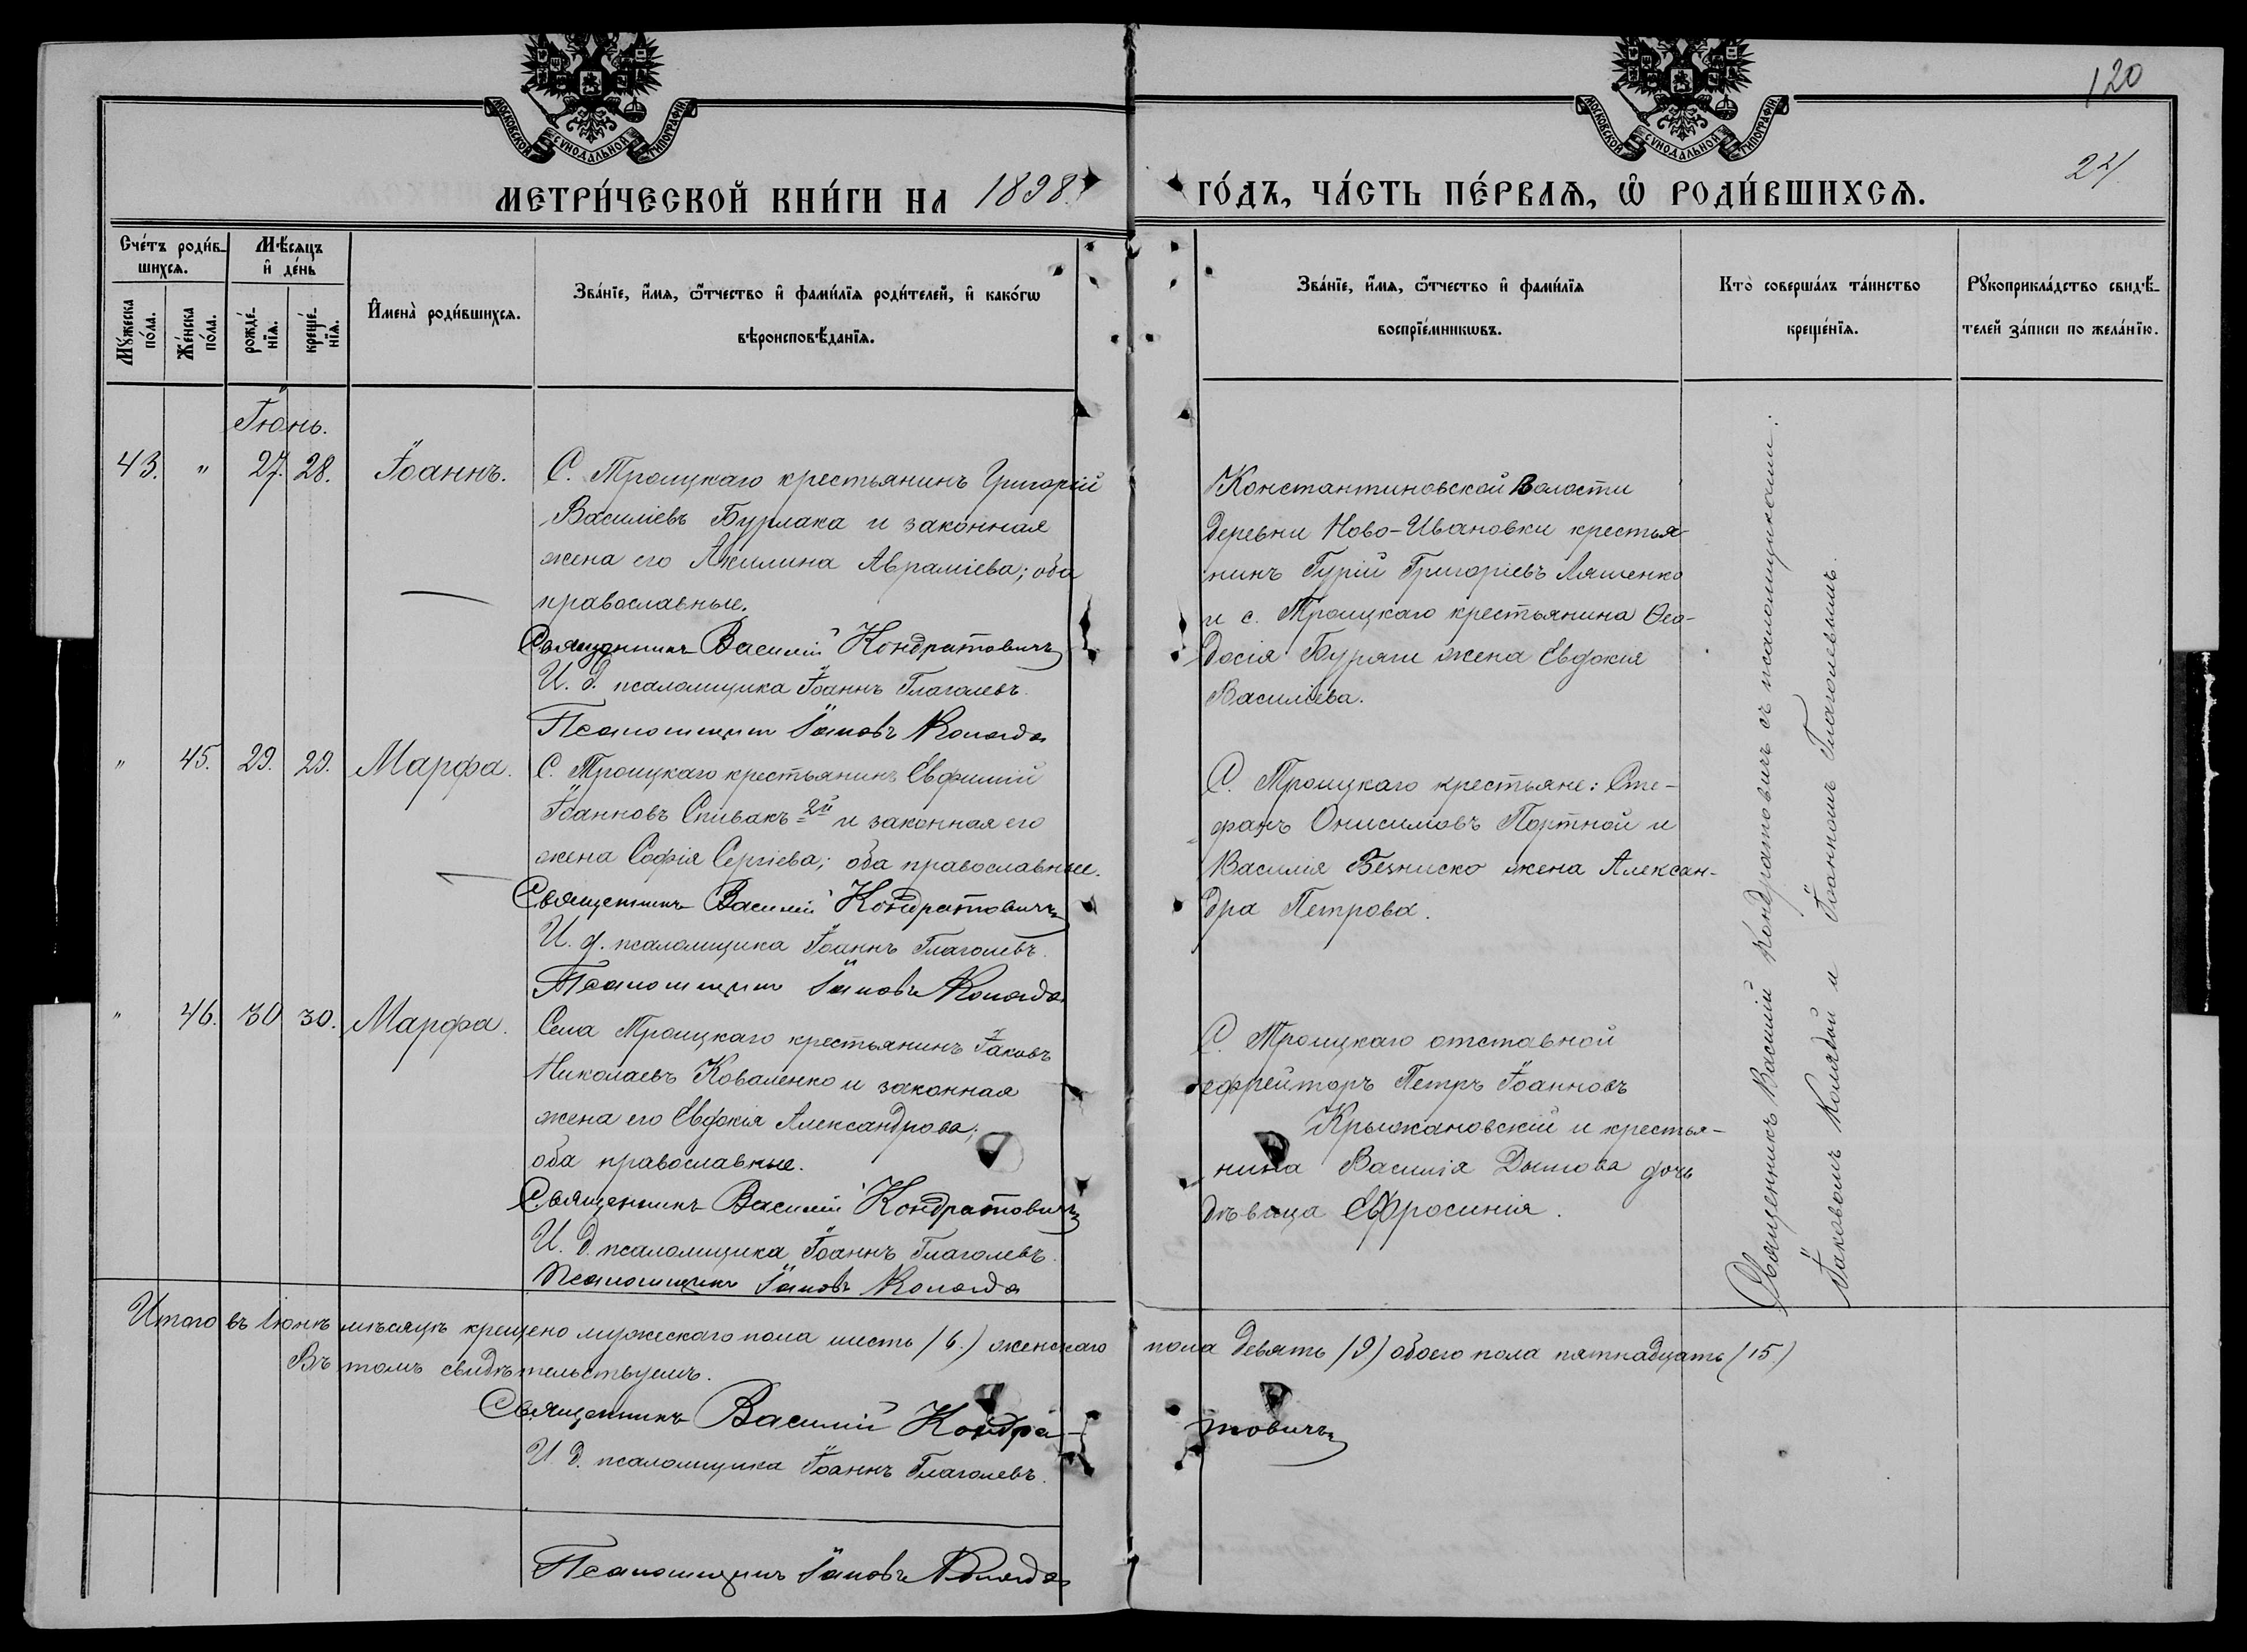 МОСКОВСКОЙ СѴНОДАЛЬНОЙ ТИПОГРАФІИ
МОСКОВСКОЙ СѴНОДАЛЬНОЙ ТИПОГРАФІИ
120
24
МЕТРИ́ЧЕСКОЙ КНИ́ГИ НА 1898.
ГО́ДЪ, ЧА́СТЬ ПЕ́РВАѦ, Ѡ҆ РОДИ́ВШИХСѦ.
Сче́тъ роди́в-
шихсѧ.
Мꙋ́жеска по́ла.
Же́нска по́ла.
Мѣ́сяцъ
и҆ де́нь
рожде́-нїѧ.
креще́-нїѧ.
И҆мена̀ роди́вшихсѧ.
Зва́нїе, и҆́мѧ, ѻ҆́тчество и҆ фами́лїѧ роди́телей, и҆ како́гѡ
вѣроисповѣ́данїѧ.
Зва́нїе, и҆́мѧ, ѻ҆́тчество и҆ фами́лїѧ
воспрїе́мникѡвъ.
Кто̀ соверша́лъ та́инство
креще́нїѧ.
Рꙋкоприкла́дство свидѣ́-
телей за́писи по жела́нїю.
Іюнь.
43. " 27. 28. Іоаннъ.
С. Троицкаго крестьянинъ Григорій
Василіевъ Бурлака и законная
жена его Акилина Авраміева; оба
православные.
Священникъ Василій Кондратовичъ
И. д. псаломщика Іоаннъ Глаголевъ.
Псаломщикъ Іаковъ Коляда
Константиновской волости
деревни Ново-Ивановки крестья-
нинъ Гурій Григоріевъ Ляшенко
и с. Троицкаго крестьянина Ѳео-
досія Буряги жена Евдокія
Василіева.
" 45. 29. 29. Марфа.
С. Троицкаго крестьянинъ Евфимій
Іоанновъ Спивакъ 2й и законная его
жена Софія Сергіева; оба православные.
Священникъ Василій Кондратовичъ
И. д. псаломщика Іоаннъ Глаголевъ.
Псаломщикъ Іаковъ Коляда
С. Троицкаго крестьяне: Сте-
фанъ Онисимовъ Портной и
Василія Безниско жена Алексан-
дра Петрова.
" 46. 30 30. Марфа.
Села Троицкаго крестьянинъ Іаковъ
Николаевъ Коваленко и законная
жена его Евдокія Александрова;
оба православные.
Священникъ Василій Кондратовичъ
И. д. псаломщика Іоаннъ Глаголевъ.
Псаломщикъ Іаковъ Коляда
С. Троицкаго отставной
ефрейторъ Петръ Іоанновъ
Крыжановскій и крестья-
нина Василія Дымова дочь
дѣвица Евфросинія.
Священникъ Василій Кондратовичъ съ псаломщиками:
Іаковомъ Колядой и Іоанномъ Глаголевымъ.
Итого въ Іюнѣ мѣсяцѣ крещено мужескаго пола шесть (6.) женскаго пола девять (9) обоего пола пятнадцать (15.)
Въ томъ свидѣтельствуемъ.
Священникъ Василій Кондра-товичъ
И. д. псаломщика Іоаннъ Глаголевъ.
Псаломщикъ Іаковъ Коляда